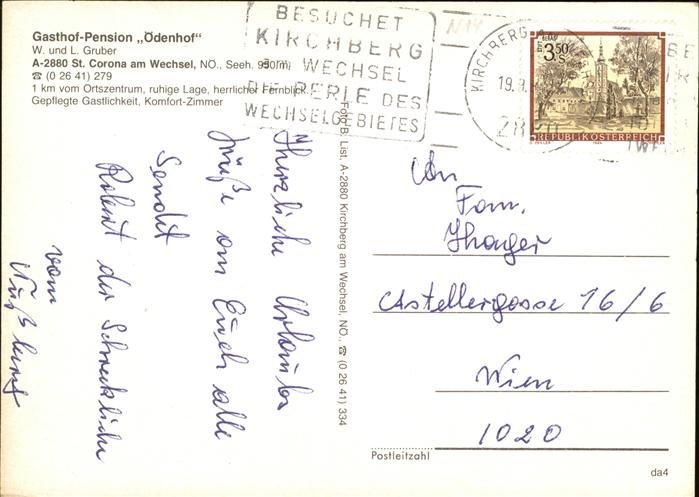 Gasthof-Pension „Ödenhof"
W. und L. Gruber
A-2880 St. Corona am Wechsel, NÖ., Seeh. 950m,
☎ (0 26 41) 279
1 km vom Ortszentrum, ruhige Lage, herrlicher Fernblick.
Gepflegte Gastlichkeit, Komfort-Zimmer
BESUCHET
KIRCHBERG
AM WECHSEL
DIE PERLE DES
WECHSELGEBIETES
KIRCHBERG
19.9.
28
3.50
S
REPUBLIK ÖSTERREICH
Foto B. List, A-2880 Kirchberg am Wechsel, NÖ., ☎ (0 26 41) 334
Herzliche Urlaubs
grüße an Euch alle
Sendet
Robert der Schreckliche
vom
An
Fam.
Thager
Castellezgasse 16/6
Wien
1020
Postleitzahl
da4